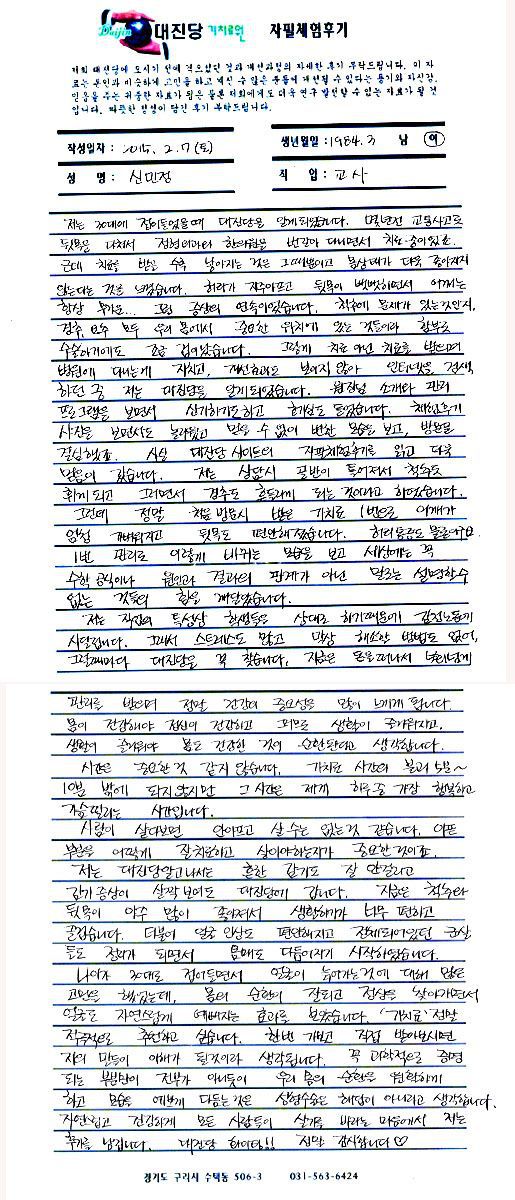 Daijin 대진당 기치료원 자필체험후기
저희 대진당에 오시기 전에 겪으셨던 것과 개선과정의 자세한 후기 부탁드립니다. 이 자
료는 본인과 비슷하게 고민을 하고 계신 수 많은 분들께 개선될 수 있다는 용기와 자신감,
믿음을 주는 귀중한 자료가 됨은 물론 저희에게도 더욱 연구 발전할 수 있는 자료가 될 것
입니다. 따뜻한 정성이 담긴 후기 부탁드립니다.
작성일자 : 2015. 2. 7 (토) 생년월일 : 1984. 3 남 여
성 명 : 신민정 직 업 : 교사
저는 30대에 접어들었을때 대진당을 알게되었습니다. 몇년전 교통사고로
뒷목을 다쳐서 정형외과와 한의원을 번갈아 다니면서 치료 중이었죠.
근데 치료를 받은 후 나아지는 것은 그때뿐이고 몸상태가 더욱 좋아지지
않는다는 것을 느꼈습니다. 허리가 자주아프고 뒷목이 뻣뻣하면서 어깨는
항상 무거운... 그런 증상의 연속이었습니다. 척추에 문제가 있는것인지,
경추, 요추 모두 우리 몸에서 중요한 위치에 있는 것들이라 함부로
수술하기에도 조금 겁이났습니다. 그렇게 치료 아닌 치료를 받으며
병원에 다니는게 지치고, 개선효과도 보이지 않아 인터넷을 검색
하던 중 저는 대진당을 알게되었습니다. 원장님 소개와 관리
프로그램을 보면서 신기하기도하고 호기심도 들었습니다. 체험후기
사진을 보면서도 놀라웠고 믿을 수 없이 변한 모습을 보고, 방문을
결심했죠. 사실 대진당 사이트의 자필체험후기를 읽고 더욱
믿음이 갔습니다. 저는 상담시 골반이 틀어져서 척추도
휘게 되고 그러면서 경추도 흐트러지게 되는 것이라고 하셨습니다.
그런데 정말 처음 방문시 받은 기치료 1번으로 어깨가
엄청 가벼워지고 뒷목도 편안해졌습니다.
1번 관리로 이렇게 바뀌는 모습을 보고 세상에는 꼭
수학 공식이나 원인과 결과의 관계가 아닌 말로는 설명할수
없는 것들의 힘을 깨달았습니다.
저는 직업의 특성상 학생들을 상대로 하기때문에 감정노동에
시달립니다. 그래서 스트레스도 많고 막상 해소할 방법도 없어,
그럴때마다 대진당을 꼭 찾습니다. 지금은 돈을떠나서
관리를 받으며 정말 건강의 중요성을 많이 느끼게 됩니다.
몸이 건강해야 정신이 건강하고 그러므로 생활이 즐거워지고,
생활이 즐거워야 몸도 건강한 것이 순환된다고 생각합니다.
시간은 중요한것 같지 않습니다. 기치료 시간이 불과 5분~
10분 밖에 되지 않지만 그 시간은 제게 하루중 가장 행복하고
가슴떨리는 시간입니다.
사람이 살다보면 안아프고 살 수는 없는것 같습니다. 아픈
부분을 어떻게 잘치료하고 살아야하는지가 중요한 것이죠.
저는 대진당알고나서는 흔한 감기도 잘 안걸리고
감기 증상이 살짝 보여도 대진당에 갑니다. 지금은 척추와
뒷목이 아주 많이 좋아져서 생활하기가 너무 편하고
즐겁습니다. 더불어 얼굴 인상도 편안해지고 정체되어있던 군살
들도 정리가 되면서 몸매도 다듬어지기 시작하였습니다.
나이가 30대로 접어들면서 얼굴이 늙어가는것에 대해 많은
고민을 했었는데, 몸의 순환이 잘되고 정상을 찾아가면서
얼굴도 자연스럽게 예뻐지는 효과를 보았습니다. "기치료" 정말
적극적으로 추천하고 싶습니다. 한번 가보고 직접 받아보시면
저의 말들이 이해가 될것이라 생각됩니다. 꼭 과학적으로 증명
되는 부분만이 전부가 아니듯이 우리 몸의 순환을 원활하게
하고 모습을 예쁘게 다듬는것은 성형수술은 해답이 아니라고 생각합니다.
자연스럽고 건강하게 모든 사람들이 살기를 바라는 마음에서 저는
후기를 남깁니다. 대진당 화이팅!! 정말 감사합니다 ♡
경기도 구리시 수택동 506-3 031-563-6424